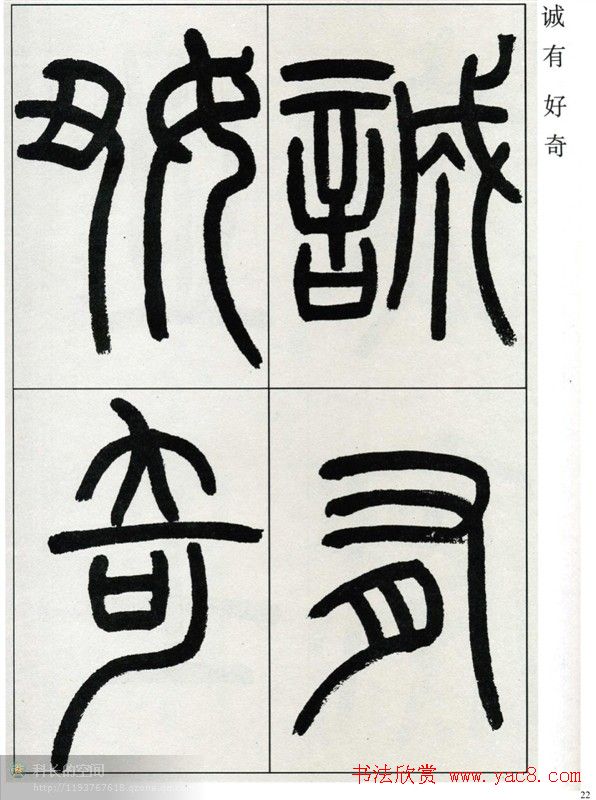 誠有
好奇
诚有好奇
科长的空间
http://1193767618.qzone.qq.com
书法欣赏 www.yac8.com
22